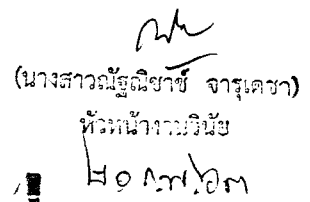 (นางสาวณัฐณิชาช์ จารุเดชา)
หัวหน้างานวินัย
๒๐ ก.พ. ๖๓